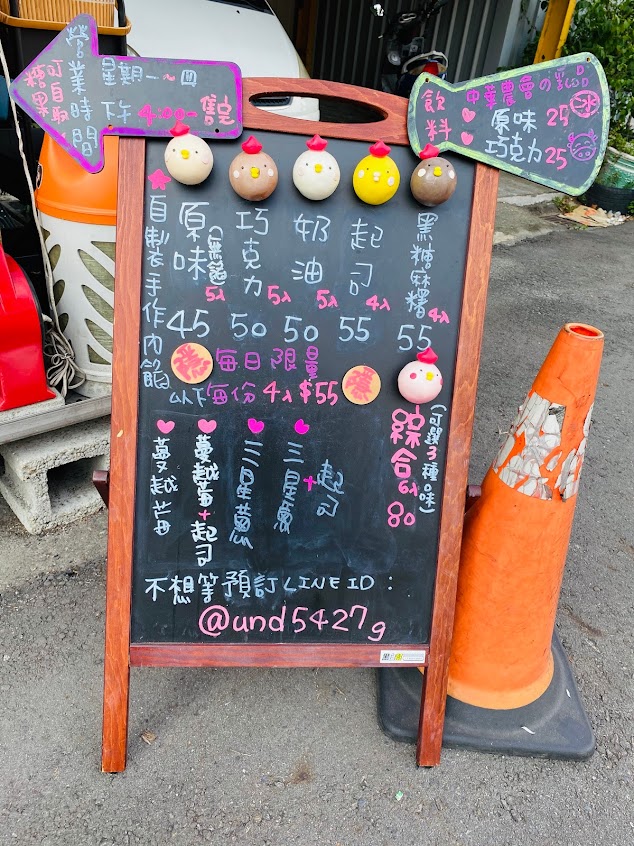 營業時間
星期一~四
下午4:00-售完
糖果可自取
中華農會の
飲料
原味 25 冰
巧克力 25
自製手作內餡
原味(無餡) 5入 45
巧克力 5入 50
奶油 5入 50
起司 4入 55
黑糖麻糬 4入 55
每日限量
以下每份4入$55
爆
蔓越莓
蔓越莓+起司
三星蔥
三星蔥+起司
綜合6入 80
(可選3種口味)
不想等預訂LINE ID:
@und5427g